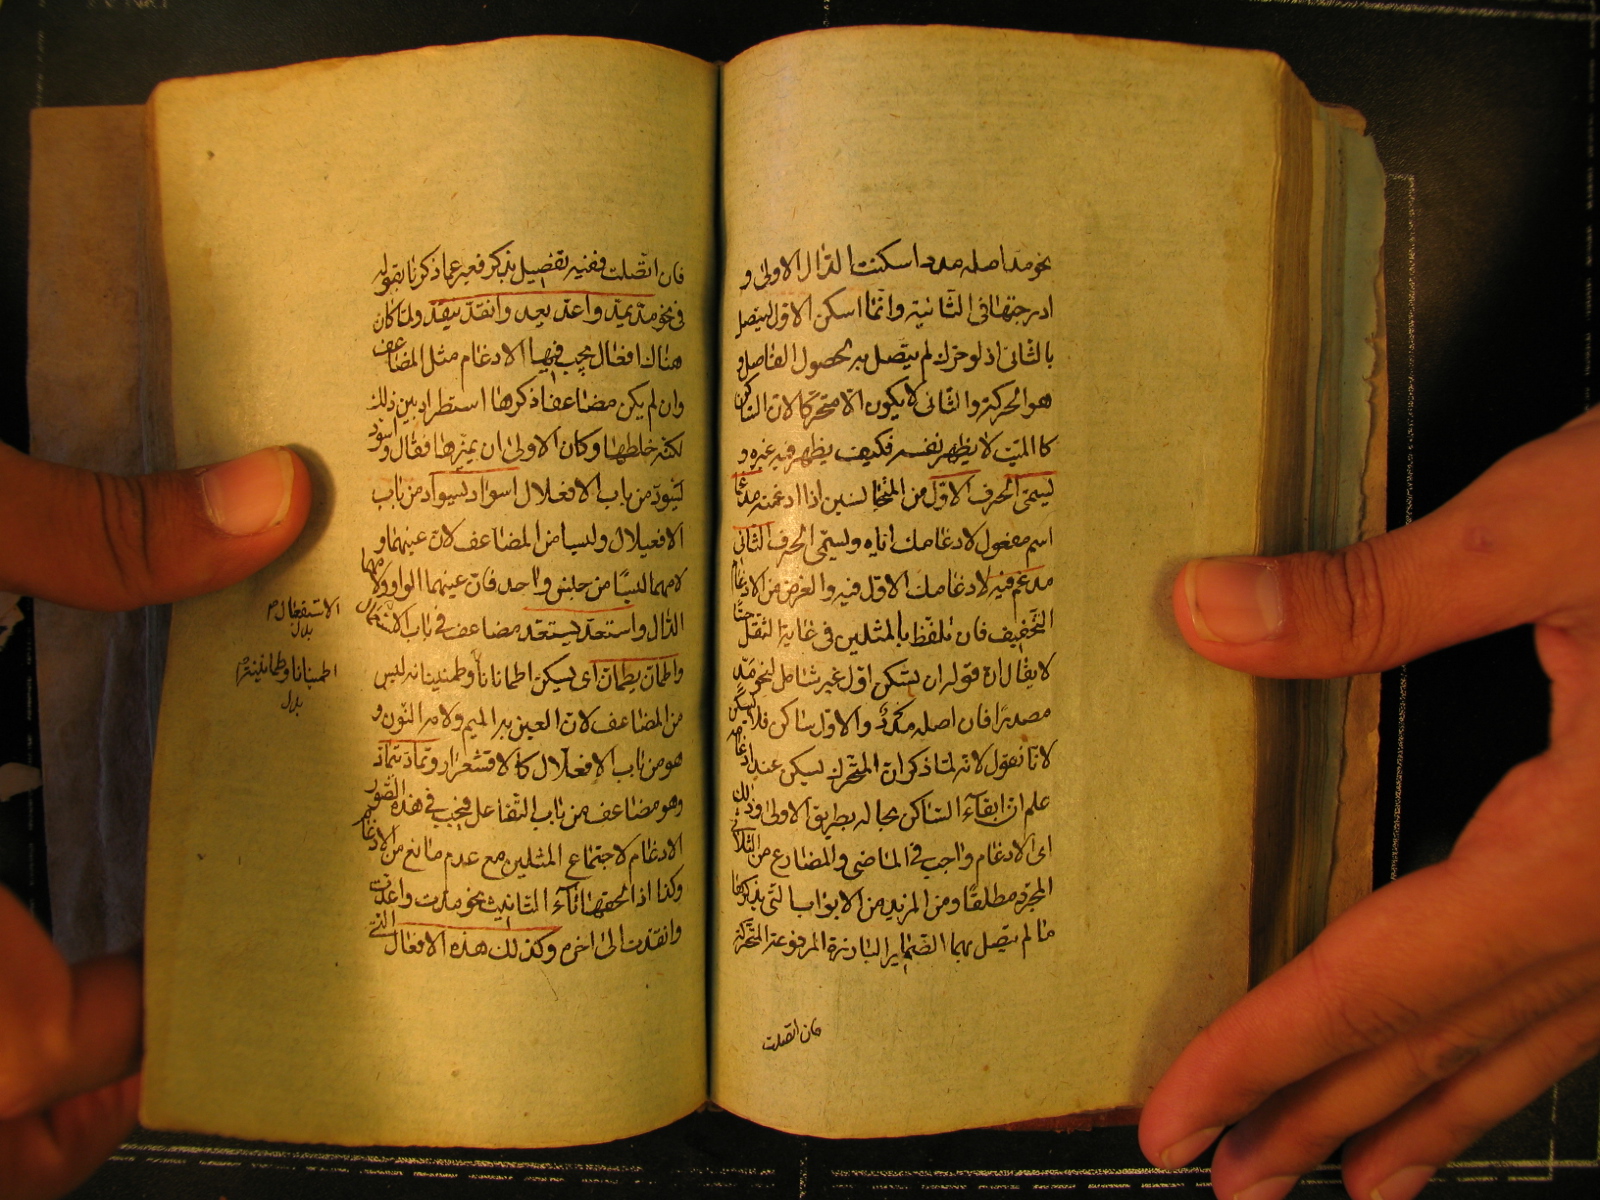 نحو مد اصله مدد اسكنت الدال الاولى و
ادرجتها في الثانية وانما اسكن الاول ليتصل
بالثاني اذ لو حرك لم يتصل به لحصول الفاصل و
هو الحركة والثاني لا يكون الا متحركا لان الساكن
كالميت لا يظهر نفسه فكيف يظهر فيه غيره و
يسمى الحرف الاول من المتجانسين اذا ادغمته مدغما
اسم مفعول لادغامك اياه ويسمى الحرف الثاني
مدغم فيه لادغامك الاول فيه والغرض من الادغام
التخفيف فان تلفظ بالمثلين في غاية الثقل حسا
لا يقال ان قوله ان يسكن اول غير شامل لنحو مد
مصدرا فان اصله مدد والاول ساكن فلا يسكن
لانا نقول لانه لما ذكر ان المتحرك يسكن عند ادغامه
علم ان ابقاء الساكن بحاله بطريق الاولى وذلك
اى الادغام واجب في الماضي والمضارع من الثلاثي
المجرد مطلقا ومن المزيد من الابواب التي يذكرها
ما لم يتصل بهما الضماير البارزة المرفوعة المتحركة
فان اتصلت
فان اتصلت ففيه تفصيل يذكر فعبر عما ذكرنا بقوله
في نحو مد يمد واعد يعد وانقد ينقد ولما كان
هناك افعال يجب فيها الادغام مثل المضاعف
وان لم يكن مضاعفا ذكرها استطرادا بين ذلك
لكنه خلطها وكان الاولى ان يميزها فقال واسود
يسود من باب الافعلال اسواد يسواد من باب
الافعيلال وليسا من المضاعف لان عينهما و
لامهما ليسا من جنس واحد فان عينهما الواو ولامهما
الدال واستعد يستعد مضاعف في باب الاستفعال
واطمان يطمان اى يسكن اطمانانا وطمنينانه ليس
من المضاعف لان العين به الميم ولامه النون و
هو من باب الافعلال كالاقشعرار وتماد يتماد
وهو مضاعف من باب التفاعل فيجب في هذه الصور
الادغام لاجتماع المثلين مع عدم مانع من الادغام
وكذا اذا الحقتها تاء التانيث نحو مدت واعدت
وانقدت الى اخره وكذلك هذه الافعال التي
الاستفعال
بدل
اطمينانا وطمانينة
بدل